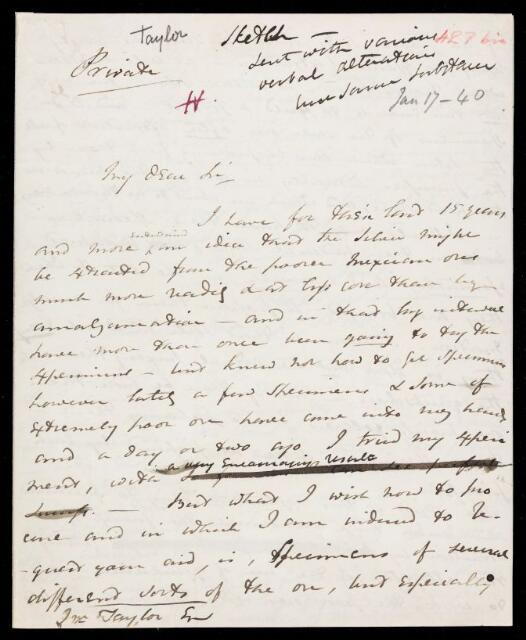 Taylor
Sketch
sent with various
verbal alterations
but same substance
Private
Jan 17-40
My Dear Sir,
I have for these last 15 years
and more an idea that the Silver might
entertained
be extracted from the poorer Mexican ores
much more readily & at less cost than by
amalgamation – and in that interval
have more than once been going to try the
experiment – but knew not how to get specimens
however lately a few specimens & some of
extremely poor ore have come into my hands
and a day or two ago I tried my experi
ment, with a very encouraging result
. – But what I wish now to pro
cure and in which I am induced to re-
-quest your aid, is, specimens of several
different sorts of the ore, but especially
Jno Taylor Esq